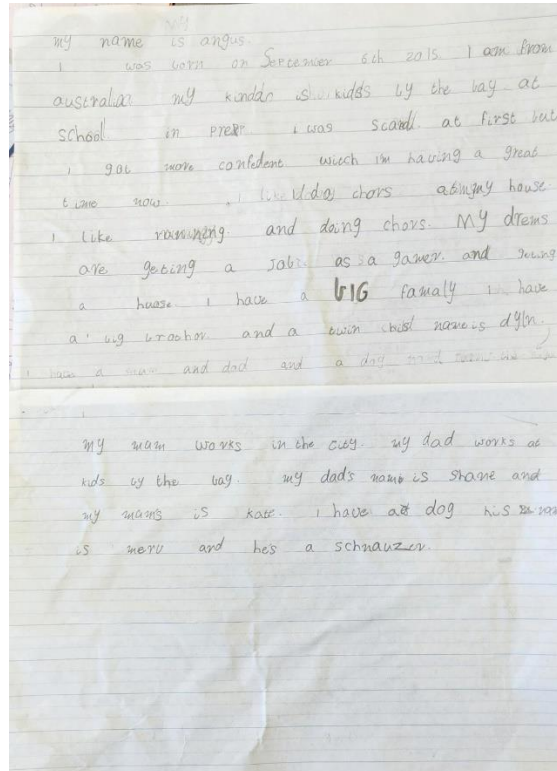 my name is angus.
I was born on September 6th 2015. I am from
australia. my kinda is kids by the bay at
school in prep i was scard at first but
i got more confedent wich im having a great
time now. i like doing chors at my house.
i like running and doing chors. My drems
are geting a job as a gamer. and
a huose. I have a BIG famaly I have
a big brother and a twin his name is dyln.
I have a mum and dad and a dog
my mum works in the city. my dad works at
kids by the bay. my dads name is shane and
my mums is kate. i have a dog his
is merv and he's a schnauzer.